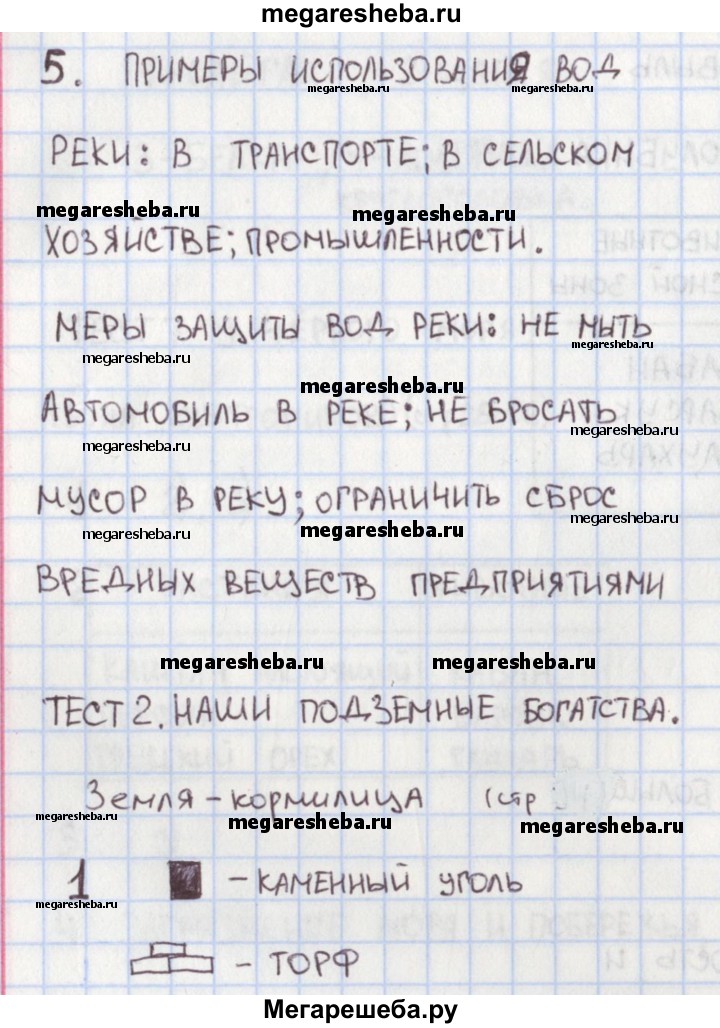 megaresheba.ru
5. ПРИМЕРЫ ИСПОЛЬЗОВАНИЯ ВОД
megaresheba.ru megaresheba.ru
РЕКИ: В ТРАНСПОРТЕ; В СЕЛЬСКОМ
megaresheba.ru megaresheba.ru
ХОЗЯЙСТВЕ; ПРОМЫШЛЕННОСТИ.
МЕРЫ ЗАЩИТЫ ВОД РЕКИ: НЕ МЫТЬ
megaresheba.ru megaresheba.ru
megaresheba.ru
АВТОМОБИЛЬ В РЕКЕ; НЕ БРОСАТЬ
megaresheba.ru megaresheba.ru
МУСОР В РЕКУ; ОГРАНИЧИТЬ СБРОС
megaresheba.ru megaresheba.ru megaresheba.ru
ВРЕДНЫХ ВЕЩЕСТВ ПРЕДПРИЯТИЯМИ
megaresheba.ru megaresheba.ru
ТЕСТ 2. НАШИ ПОДЗЕМНЫЕ БОГАТСТВА.
ЗЕМЛЯ - КОРМИЛИЦА (стр
megaresheba.ru megaresheba.ru megaresheba.ru
1 - КАМЕННЫЙ УГОЛЬ
megaresheba.ru
- ТОРФ
Мегарешеба.ру